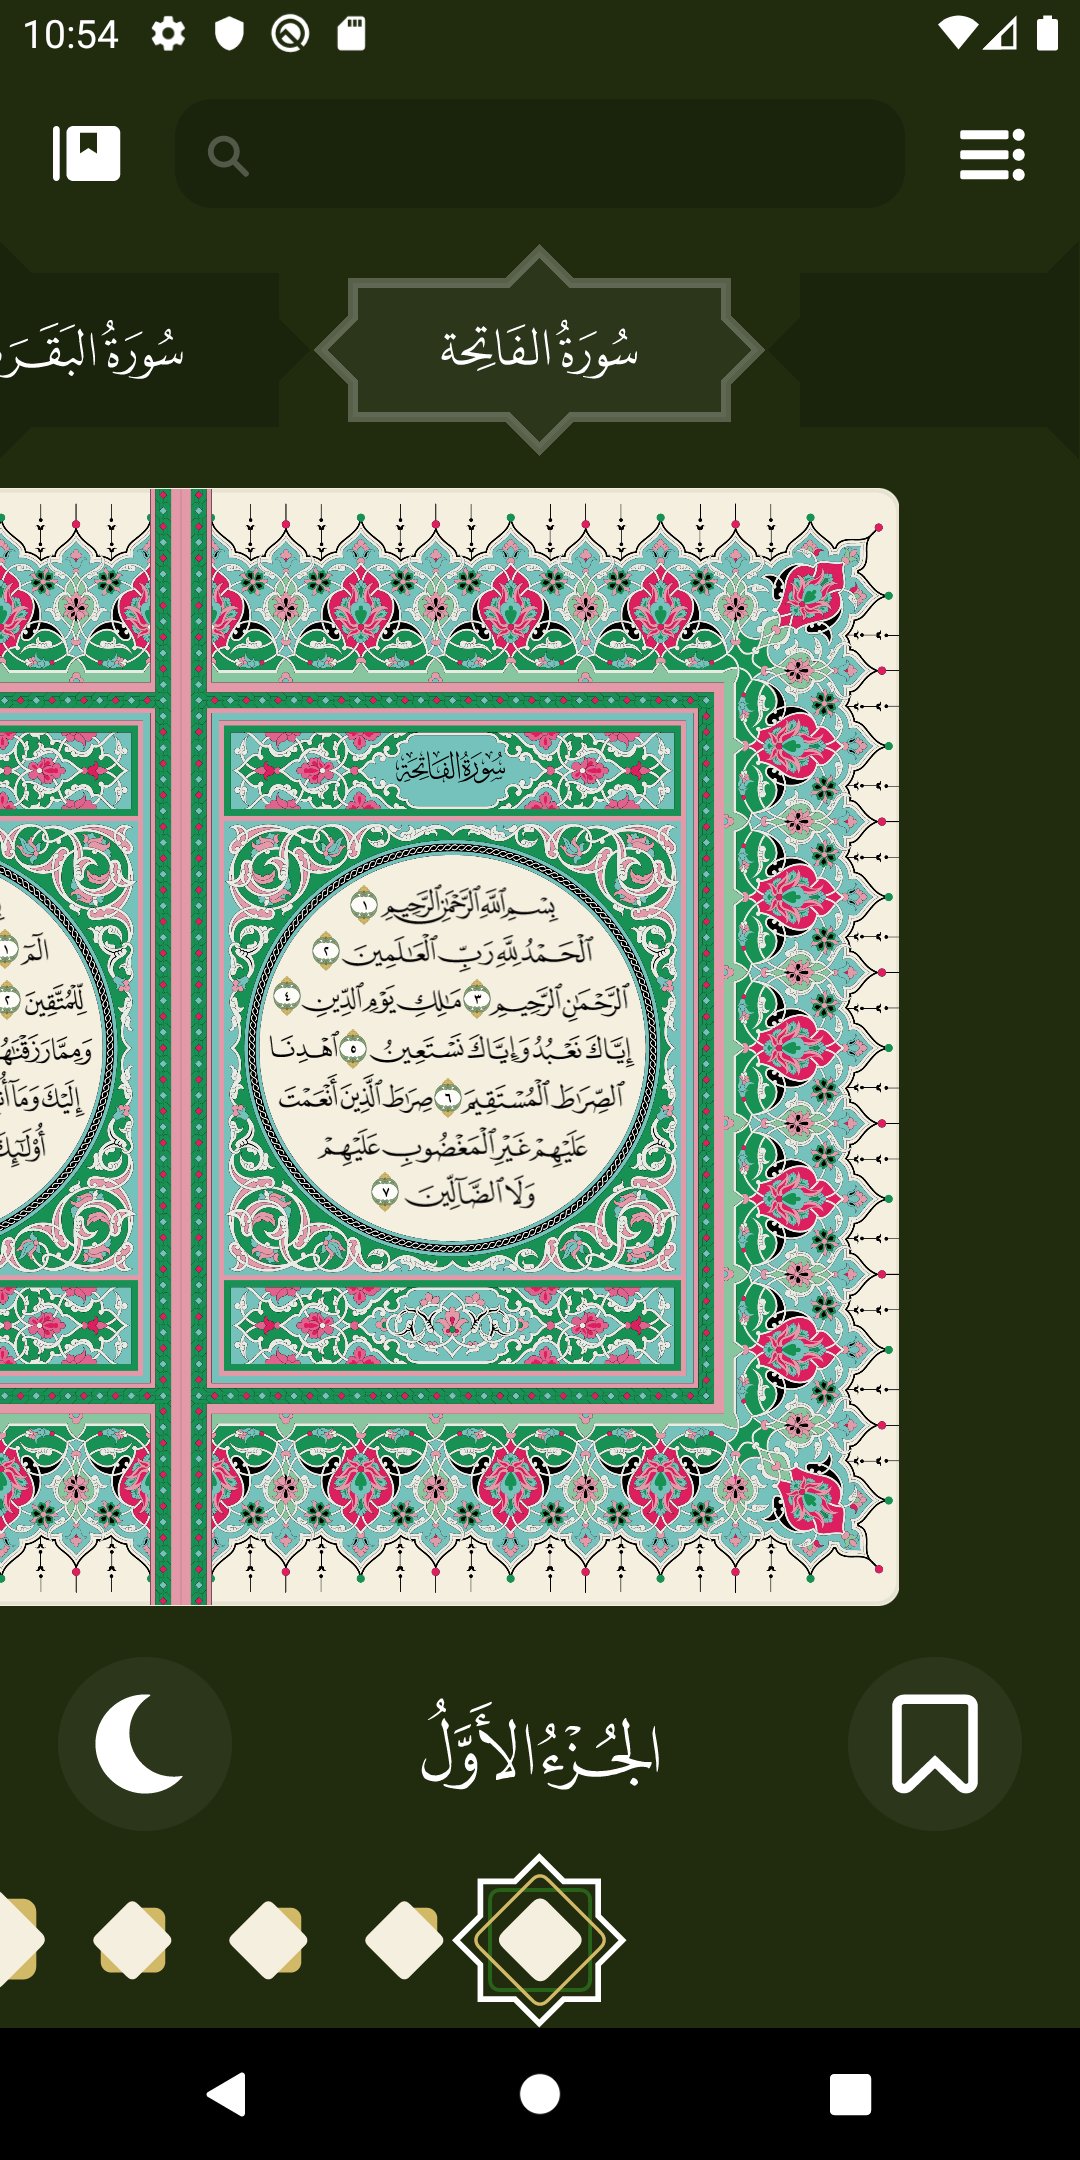 10:54
سُورَةُ الفَاتِحة
سُورَةُ البَقَرَة
سُورَةُ الفَاتِحَة
بِسْمِ ٱللَّهِ ٱلرَّحْمَٰنِ ٱلرَّحِيمِ ١
ٱلْحَمْدُ لِلَّهِ رَبِّ ٱلْعَٰلَمِينَ ٢
ٱلرَّحْمَٰنِ ٱلرَّحِيمِ ٣ مَٰلِكِ يَوْمِ ٱلدِّينِ ٤
إِيَّاكَ نَعْبُدُ وَإِيَّاكَ نَسْتَعِينُ ٥ ٱهْدِنَا
ٱلصِّرَٰطَ ٱلْمُسْتَقِيمَ ٦ صِرَٰطَ ٱلَّذِينَ أَنْعَمْتَ
عَلَيْهِمْ غَيْرِ ٱلْمَغْضُوبِ عَلَيْهِمْ
وَلَا ٱلضَّآلِّينَ ٧
الٓمٓ ١
لِّلْمُتَّقِينَ ٢
وَمِمَّا رَزَقْنَٰهُ
إِلَيْكَ وَمَآ أُن
أُو۟لَٰٓئِكَ
الجُزْءُ الأَوَّلُ